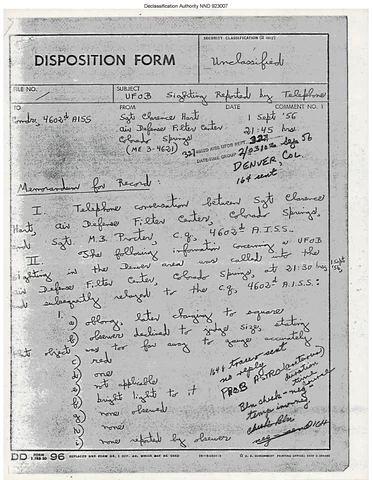 Declassification Authority NND 923007
DISPOSITION FORM
SECURITY CLASSIFICATION (If any)
Unclassified
FILE NO.
SUBJECT
UFOB Sighting Reported by Telephone
TO
FROM
DATE
COMMENT NO. 1
Comdr, 4602d AISS
Sgt Clarence Hart
Air Defense Filter Center
Colorado Springs
(ME 3-4621)
1 Sept '56
21:45 hrs
DENVER, COL.
164 sent
Memorandum for Record:
I. Telephone conversation between Sgt Clarence
Hart, Air Defense Filter Center, Colorado Springs,
and Sgt. M.B. Procter, C.Q., 4602d A.I.S.S.
II. The following information concerning a UFOB
sighting in the Denver area was called into the
Air Defense Filter Center, Colorado Springs, at 21:30 hrs 1 Sept '56,
and subsequently relayed to the C.Q., 4602d A.I.S.S.:
1. a) oblong, later changing to square
b) observer declined to judge size, stating
that object was too far away to gauge accurately
c) red
d) one
e) not applicable
f) bright light to it
g) none observed
h) none
i) none reported by observer
164 tracer sent
no reply
PROB ASTRO
duration
time
temp
DD FORM 96
REPLACES NME FORM 96, 1 OCT 48, WHICH MAY BE USED
U. S. GOVERNMENT PRINTING OFFICE